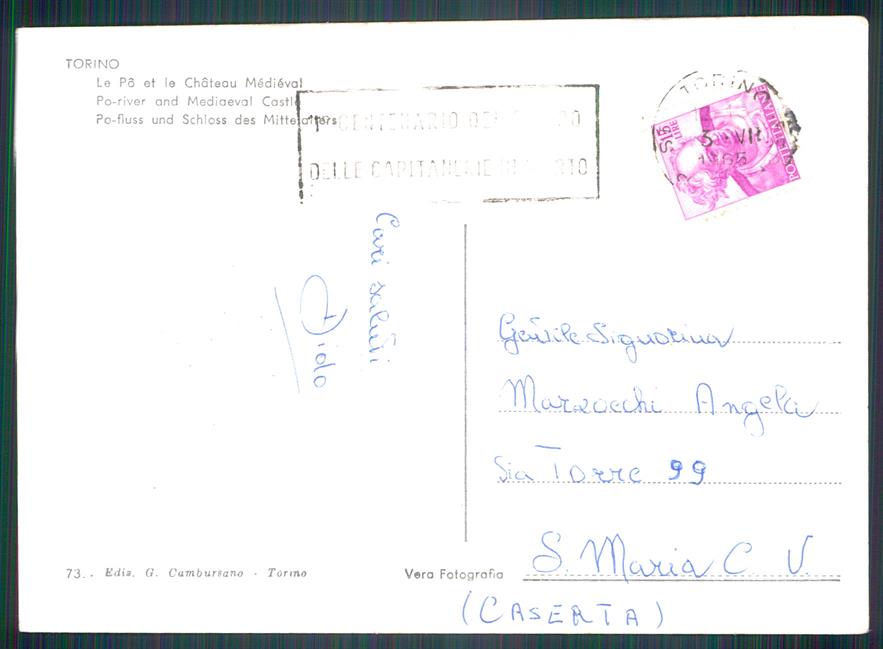 TORINO
Le Pô et le Château Médiéval
Po-river and Mediaeval Castle
Po-fluss und Schloss des Mittelalters
1° CENTENARIO DEL CORPO
DELLE CAPITANERIE DI PORTO
TORINO
3 VII
1965
LIRE
POSTE ITALIANE
Cari saluti
Dido
Gentile Signorina
Marzocchi Angela
Via Torre 99
S. Maria C. V.
(CASERTA)
73. . Ediz. G. Cambursano - Torino
Vera Fotografia